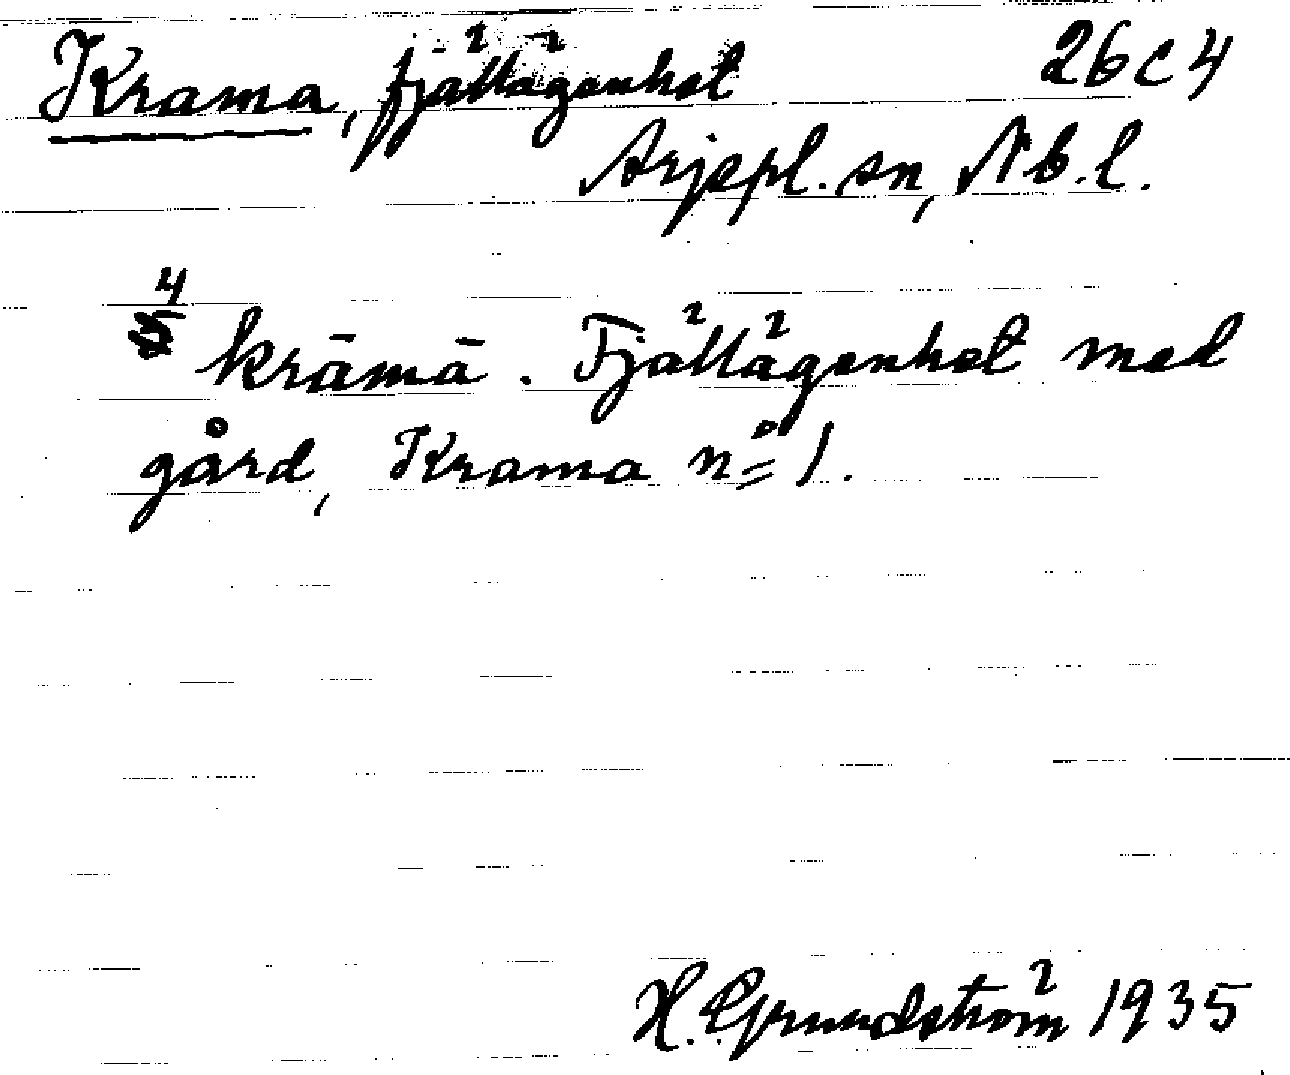 Krama, fjällägenhet 26c4
Arjepl. sn, Nb. l.
4
krāmā. Fjällägenhet med
gård, Krama nº 1.
H. Grundström 1935